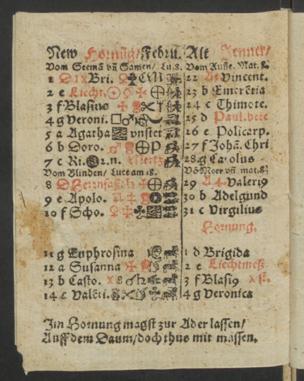 New Hornūg/Febru. Alt Jenner/
Vom Seemā vñ Samen/ Lu.8. Vom Ausse. Mat. 8.
1 D Bri. 22 Vincent.
2 e Liecht. 23 b Emerētia
3 f Blasius 24 c Thimote.
4 g Veroni. 25 d Paul. bere
5 a Agatha 26 e Policarp.
6 b Doro. 27 f Johā. Chri
7 c Ri. 28 g Carolus
Vom Blinden/ Luce am 18. Võ Meer vñ mat. 8.
8 D 29 A 4. Valeriꝰ
9 e Apolo. 30 b Adelgund
10 f Scho. 31 c Virgilius
Hornung.
11 g Euphrosina 1 d Brigida
12 a Susanna 2 e Liechtmeß
13 b Casto. 3 f Blasiꝰ
14 c Valēti. 4 g Veronica
Im Hornung magst zur Ader lassen/
Auff dem Daum/ doch thue mit massen.